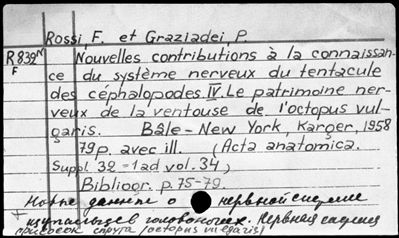 Rossi, F. et Graziadei, P.
R 839 M Nouvelles contributions à la connaissan-
F ce du système nerveux du tentacule
des céphalopodes. IV. Le patrimoine ner-
veux de la ventouse de l'octopus vul-
garis. Bâle - New York, Karger, 1958
79p. avec ill. (Acta anatomica.
Suppl. 32 = 1 ad vol. 34)
Bibliogr. p. 75-79.
Новые данные о нервной системе
+ щупальцев головоногих. Нервная система
присосок спрута (octopus vulgaris)